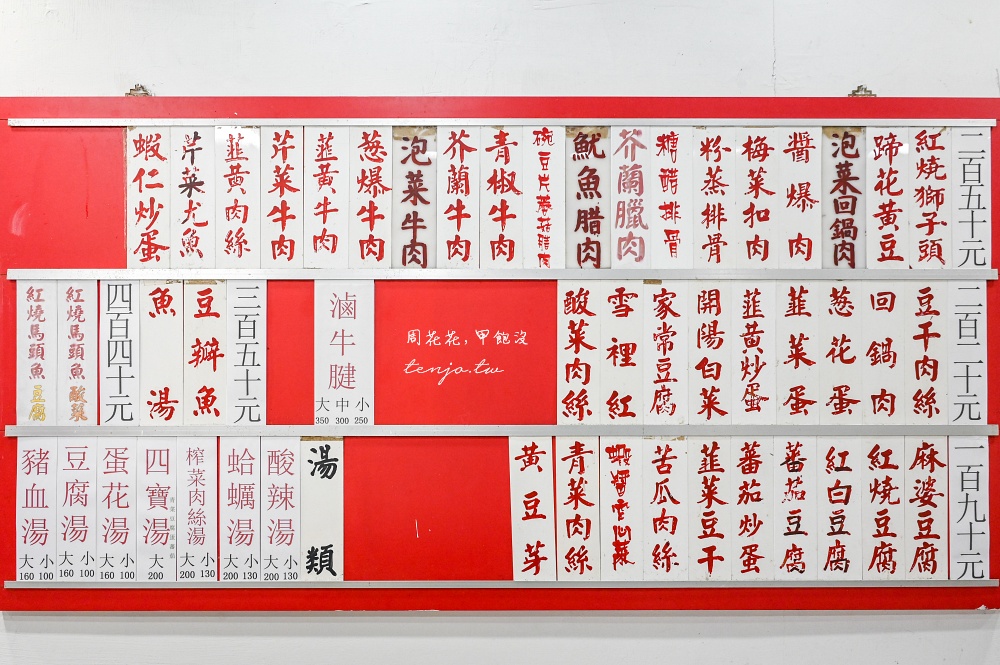 二百五十元
紅燒獅子頭
蹄花黃豆
泡菜回鍋肉
醬爆肉
梅菜扣肉
粉蒸排骨
糖醋排骨
芥蘭臘肉
魷魚腊肉
碗豆片蒜苗腊肉
青椒牛肉
芥蘭牛肉
泡菜牛肉
葱爆牛肉
韮黃牛肉
芹菜牛肉
韮黃肉絲
芹菜尤魚
蝦仁炒蛋
二百二十元
豆干肉絲
回鍋肉
葱花蛋
韮菜蛋
韮黃炒蛋
開陽白菜
家常豆腐
雪裡紅
酸菜肉絲
周花花，甲飽沒
tenjo.tw
滷牛腱
大 中 小
350 300 250
三百五十元
豆瓣魚
魚湯
四百四十元
紅燒馬頭魚酸菜
紅燒馬頭魚豆腐
一百九十元
麻婆豆腐
紅燒豆腐
紅白豆腐
蕃茄豆腐
蕃茄炒蛋
韮菜豆干
苦瓜肉絲
青菜肉絲
黃豆芽
湯類
酸辣湯
大 小
200 130
蛤蠣湯
大 小
200 130
榨菜肉絲湯
大 小
200 130
四寶湯
大
200
蛋花湯
大 小
160 100
豆腐湯
大 小
160 100
豬血湯
大 小
160 100